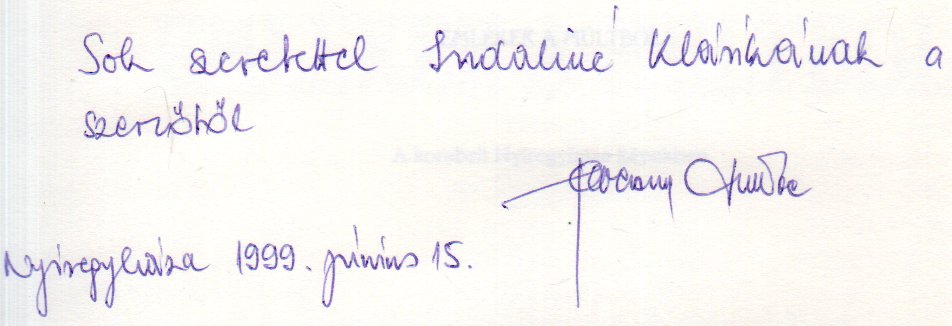 Sok szeretettel Indaliné Klárikának a
szerzőtől
Nyíregyháza 1999. június 15.